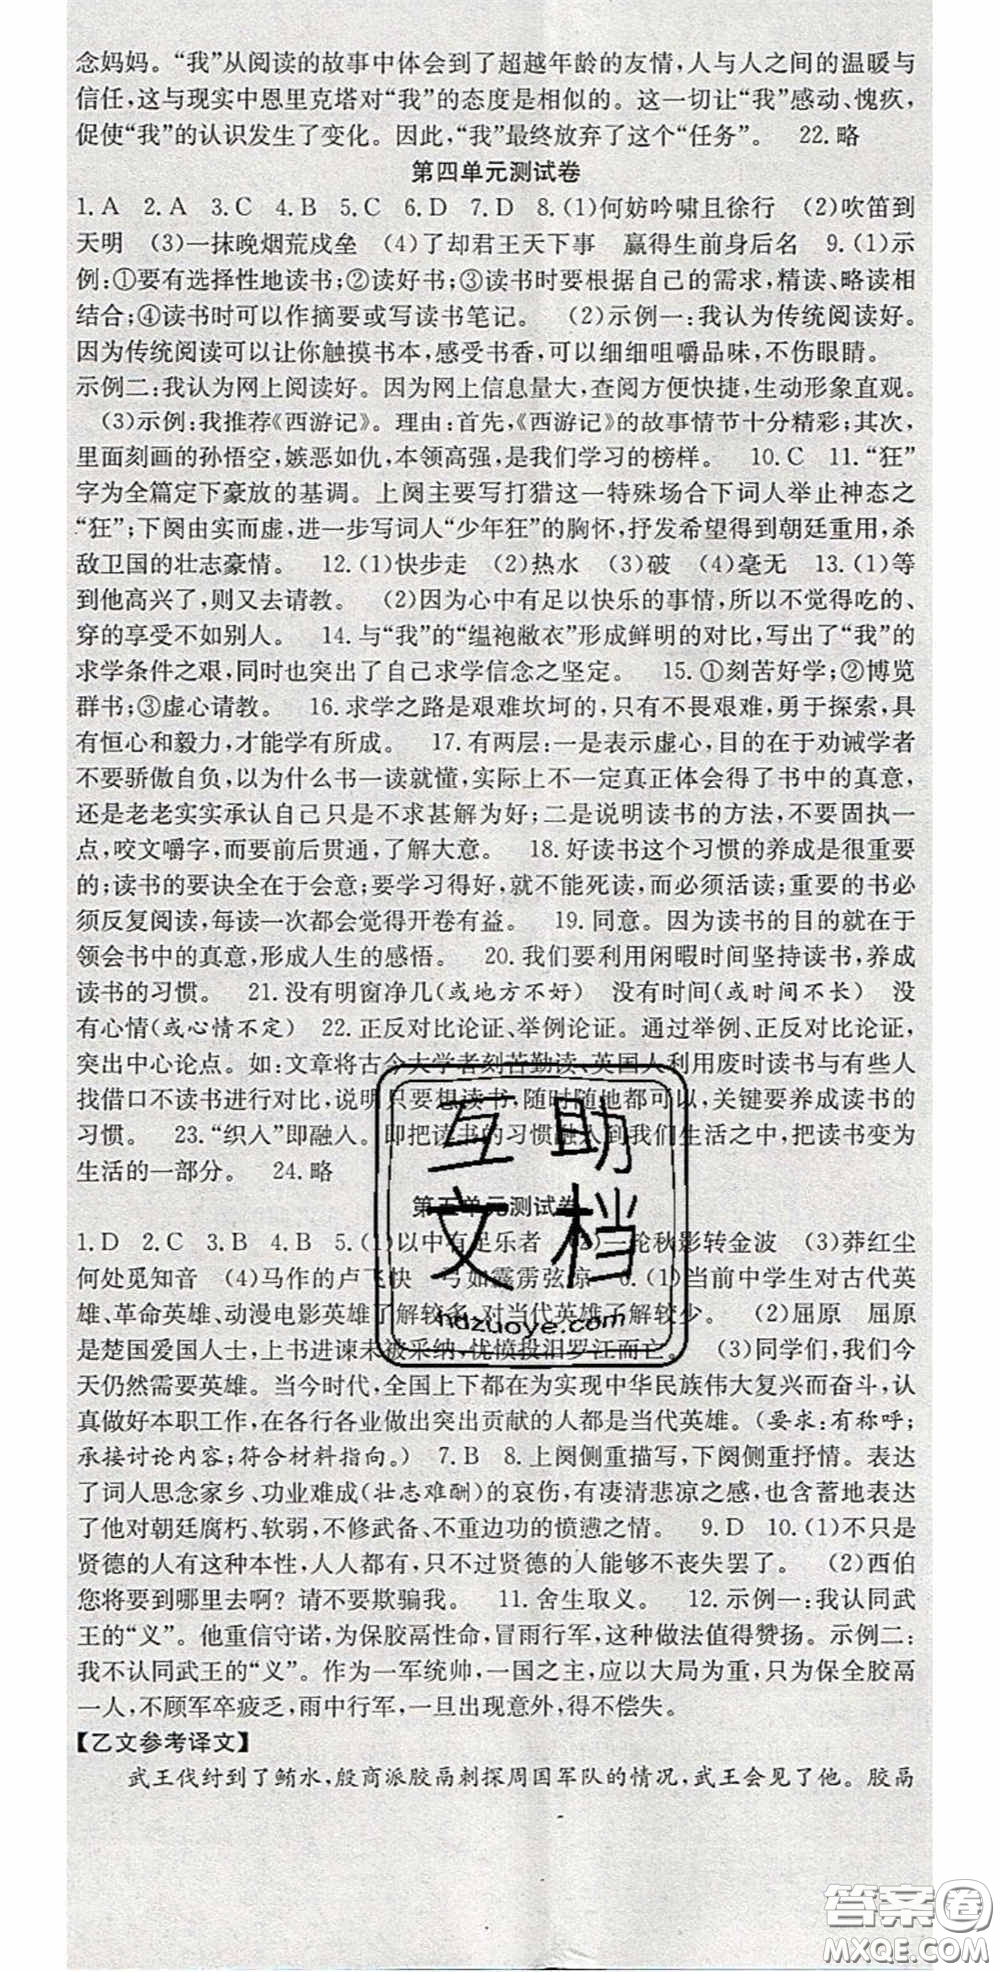 念妈妈。“我”从阅读的故事中体会到了超越年龄的友情,人与人之间的温暖与
信任,这与现实中恩里克塔对“我”的态度是相似的。这一切让“我”感动、愧疚,
促使“我”的认识发生了变化。因此,“我”最终放弃了这个“任务”。 22.略
第四单元测试卷
1.A 2.A 3.C 4.B 5.C 6.D 7.D 8.(1)何妨吟啸且徐行 (2)吹笛到
天明 (3)一抹晚烟荒戍垒 (4)了却君王天下事 赢得生前身后名 9.(1)示
例:①要有选择性地读书;②读好书;③读书时要根据自己的需求,精读、略读相
结合;④读书时可以作摘要或写读书笔记。 (2)示例一:我认为传统阅读好。
因为传统阅读可以让你触摸书本,感受书香,可以细细咀嚼品味,不伤眼睛。
示例二:我认为网上阅读好。因为网上信息量大,查阅方便快捷,生动形象直观。
(3)示例:我推荐《西游记》。理由:首先,《西游记》的故事情节十分精彩;其次,
里面刻画的孙悟空,嫉恶如仇,本领高强,是我们学习的榜样。 10.C 11.“狂”
字为全篇定下豪放的基调。上阕主要写打猎这一特殊场合下词人举止神态之
“狂”;下阕由实而虚,进一步写词人“少年狂”的胸怀,抒发希望得到朝廷重用,杀
敌卫国的壮志豪情。 12.(1)快步走 (2)热水 (3)破 (4)毫无 13.(1)等
到他高兴了,则又去请教。 (2)因为心中有足以快乐的事情,所以不觉得吃的、
穿的享受不如别人。 14.与“我”的“缊袍敝衣”形成鲜明的对比,写出了“我”的
求学条件之艰,同时也突出了自己求学信念之坚定。 15.①刻苦好学;②博览
群书;③虚心请教。 16.求学之路是艰难坎坷的,只有不畏艰难,勇于探索,具
有恒心和毅力,才能学有所成。 17.有两层:一是表示虚心,目的在于劝诫学者
不要骄傲自负,以为什么书一读就懂,实际上不一定真正体会得了书中的真意,
还是老老实实承认自己只是不求甚解为好;二是说明读书的方法,不要固执一
点,咬文嚼字,而要前后贯通,了解大意。 18.好读书这个习惯的养成是很重要
的;读书的要诀全在于会意;要学习得好,就不能死读,而必须活读;重要的书必
须反复阅读,每读一次都会觉得开卷有益。 19.同意。因为读书的目的就在于
领会书中的真意,形成人生的感悟。 20.我们要利用闲暇时间坚持读书,养成
读书的习惯。 21.没有明窗净几(或地方不好) 没有时间(或时间不长) 没
有心情(或心情不定) 22.正反对比论证、举例论证。通过举例、正反对比论证,
突出中心论点。如:文章将古今大学者刻苦勤读、英国人利用废时读书与有些人
找借口不读书进行对比,说明只要想读书,随时随地都可以,关键要养成读书的
习惯。 23.“织人”即融人。即把读书的习惯融入到我们生活之中,把读书变为
生活的一部分。 24.略
第五单元测试卷
1.D 2.C 3.B 4.B 5.(1)以中有足乐者 (2)一轮秋影转金波 (3)莽红尘
何处觅知音 (4)马作的卢飞快 弓如霹雳弦惊 6.(1)当前中学生对古代英
雄、革命英雄、动漫电影英雄了解较多,对当代英雄了解较少。 (2)屈原 屈原
是楚国爱国人士,上书进谏未被采纳,忧愤投汨罗江而亡。 (3)同学们,我们今
天仍然需要英雄。当今时代,全国上下都在为实现中华民族伟大复兴而奋斗,认
真做好本职工作,在各行各业做出突出贡献的人都是当代英雄。(要求:有称呼;
承接讨论内容;符合材料指向。) 7.B 8.上阕侧重描写,下阕侧重抒情。表达
了词人思念家乡、功业难成(壮志难酬)的哀伤,有凄清悲凉之感,也含蓄地表达
了他对朝廷腐朽、软弱,不修武备、不重边功的愤懑之情。 9.D 10.(1)不只是
贤德的人有这种本性,人人都有,只不过贤德的人能够不丧失罢了。 (2)西伯
您将要到哪里去啊?请不要欺骗我。 11.舍生取义。 12.示例一:我认同武
王的“义”。他重信守诺,为保胶鬲性命,冒雨行军,这种做法值得赞扬。示例二:
我不认同武王的“义”。作为一军统帅,一国之主,应以大局为重,只为保全胶鬲
一人,不顾军卒疲乏,雨中行军,一旦出现意外,得不偿失。
【乙文参考译文】
武王伐纣到了鲔水,殷商派胶鬲刺探周国军队的情况,武王会见了他。胶鬲
互助
文档
hdzuoye.com
答案卷
MXQE.COM